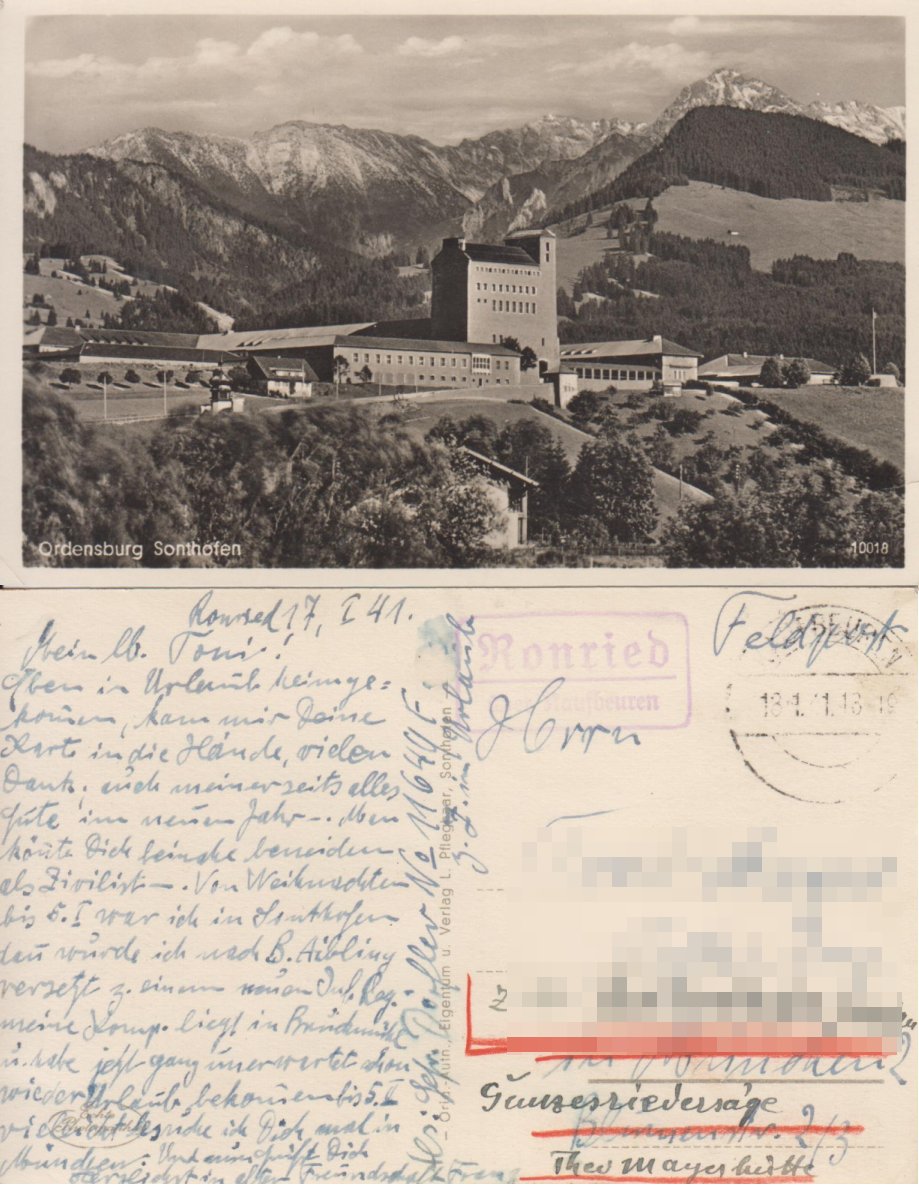 Ordensburg Sonthofen
10018
Ronried 17, I 41.
Mein lb. Toni!
Eben in Urlaub heimge=
kommen, kam mir Deine
Karte in die Hände, vielen
Dank, auch meinerseits alles
Gute im neuen Jahr –. Man
könnte Dich beinahe beneiden
als Zivilist –. Von Weihnachten
bis 5. I war ich in Sonthofen
dann wurde ich nach B. Aibling
versetzt z. einem neuen Inf. Reg.
meine Komp. liegt in
u. habe jetzt ganz unerwartet schon
wieder Urlaub bekommen bis
vielleicht besuche ich Dich mal in
München. Und nun grüßt Dich
herzlichst in alter Freundschaft Franz
z. Z. im Urlaub
L. Pflegezar, Sonthofen
Orig.-Aufn., Eigentum u. Verlag
Ronried
Kaufbeuren
Feldpost
18.1.41.18-19
Herrn
in München 2
Gunzesriedersäge
2/3
Theo Mayerhütte